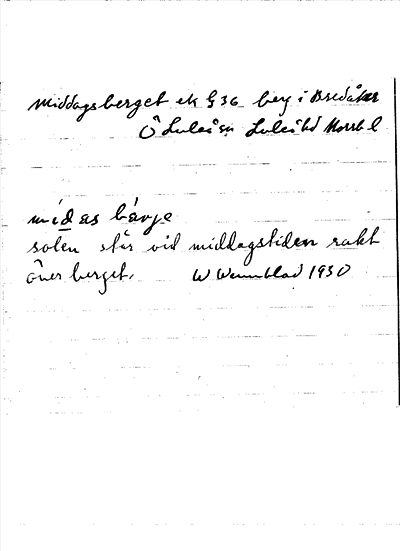 Middagsberget ek § 36 berg i Bredåker
Ö Luleå sn Luleå td Norrb l
mídas bä́rje
solen står vid middagstiden rakt
över berget. W Wennblad 1930